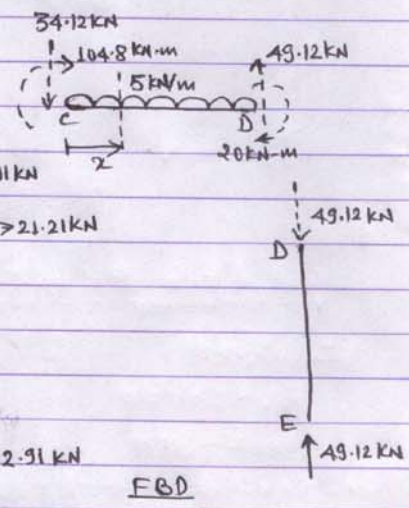 34.12 KN
104.8 KN-m
49.12 KN
5 KN/m
C
D
x
20KN-m
11 KN
>21.21KN
49.12 KN
D
E
2.91 KN
49.12 KN
FBD